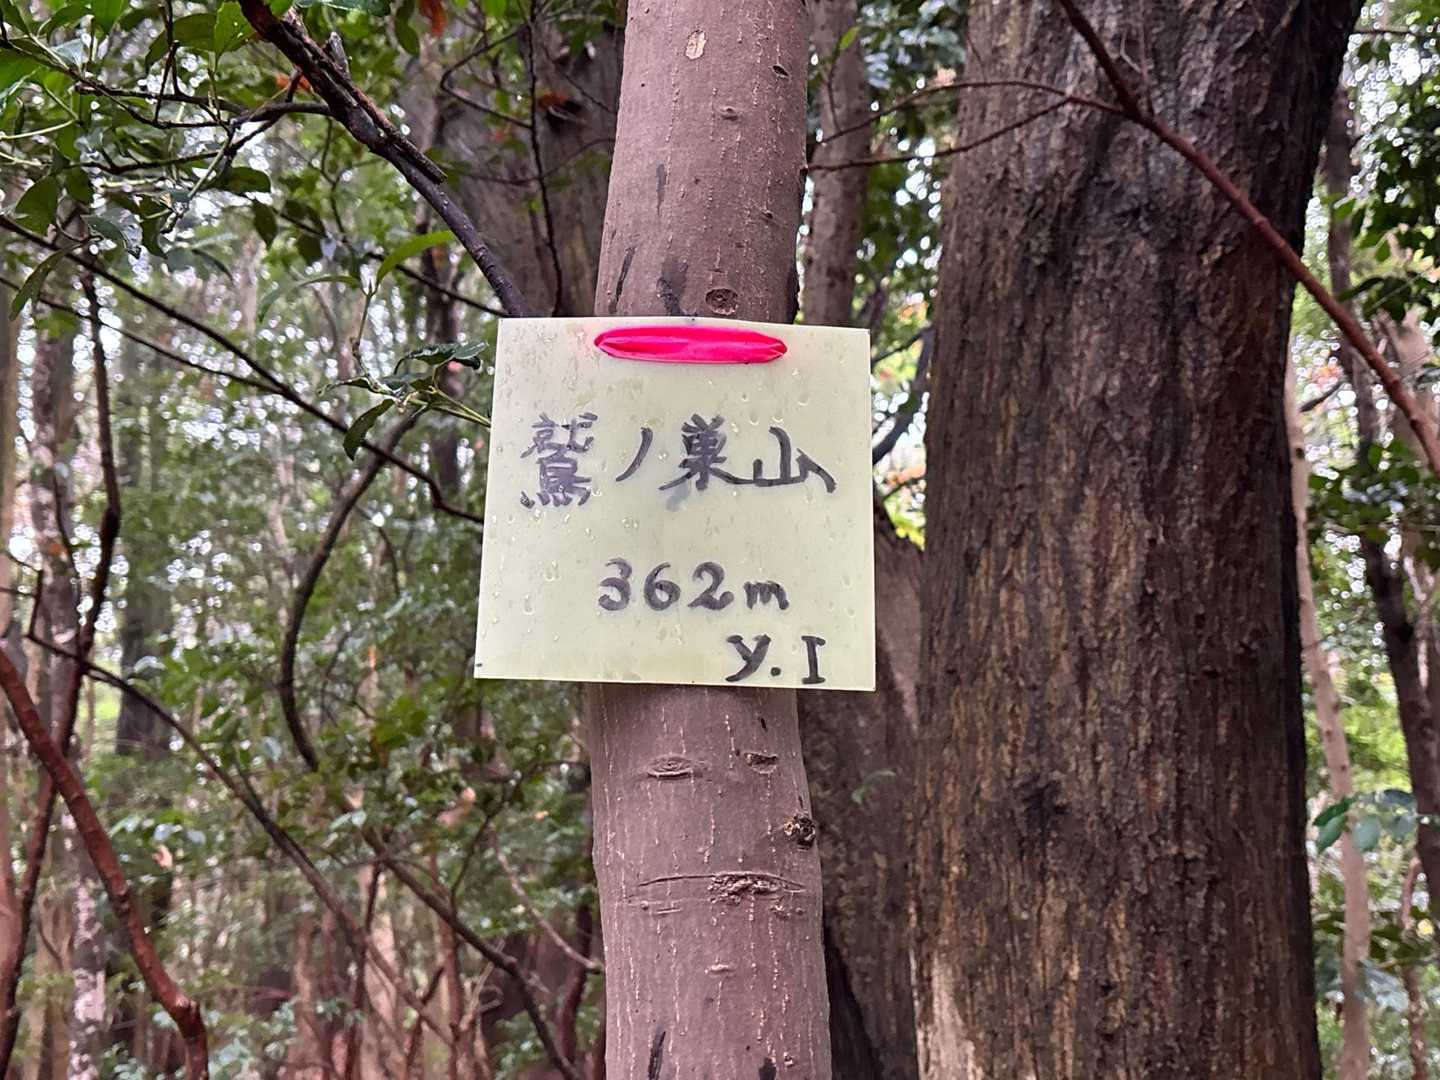 鷲ノ巣山
362m
Y.I